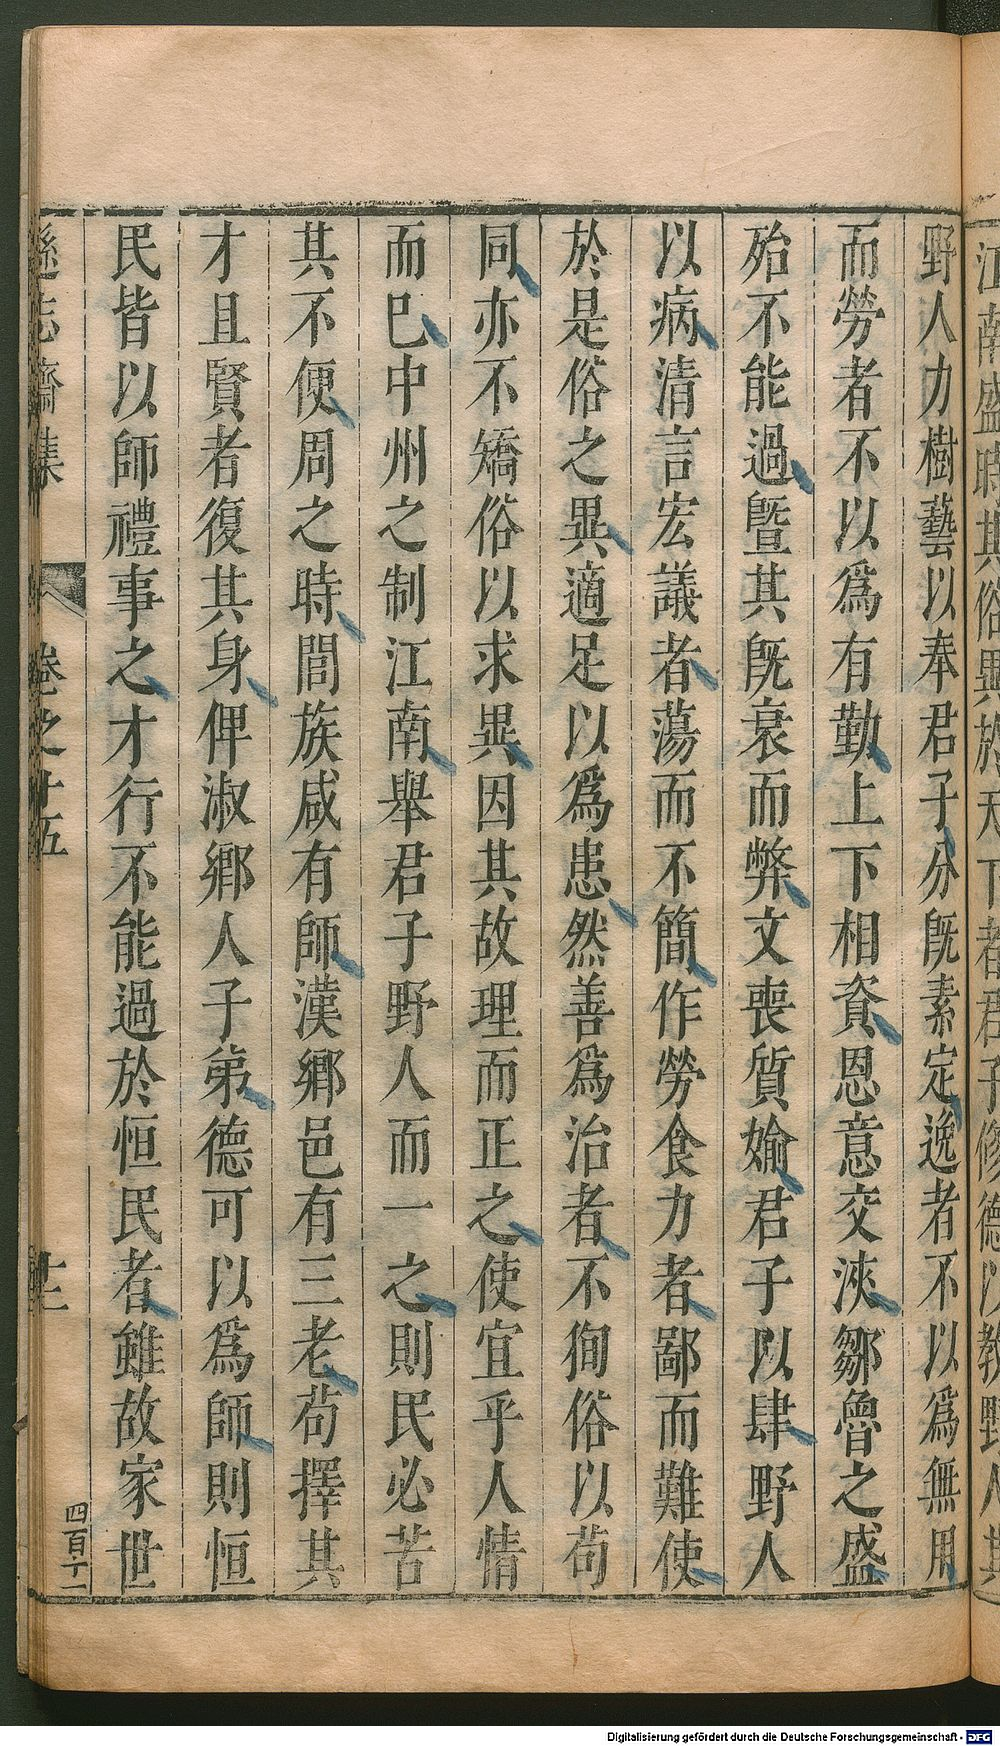 江南盛時其俗異於天下者君子修德以教野人其
野人力樹藝以奉君子分旣素定逸者不以爲無用
而勞者不以爲有勤上下相資恩意交浹鄒魯之盛
殆不能過曁其旣衰而弊文喪質媮君子以肆野人
以病清言宏議者蕩而不簡作勞食力者鄙而難使
於是俗之異適足以爲患然善爲治者不狥俗以苟
同亦不矯俗以求異因其故理而正之使宜乎人情
而巳中州之制江南舉君子野人而一之則民必苦
其不便周之時閭族咸有師漢鄉邑有三老苟擇其
才且賢者復其身俾淑鄉人子弟德可以爲師則恒
民皆以師禮事之才行不能過於恒民者雖故家世
遜志齋集 卷之十五 十二 四百十一
Digitalisierung gefördert durch die Deutsche Forschungsgemeinschaft - DFG